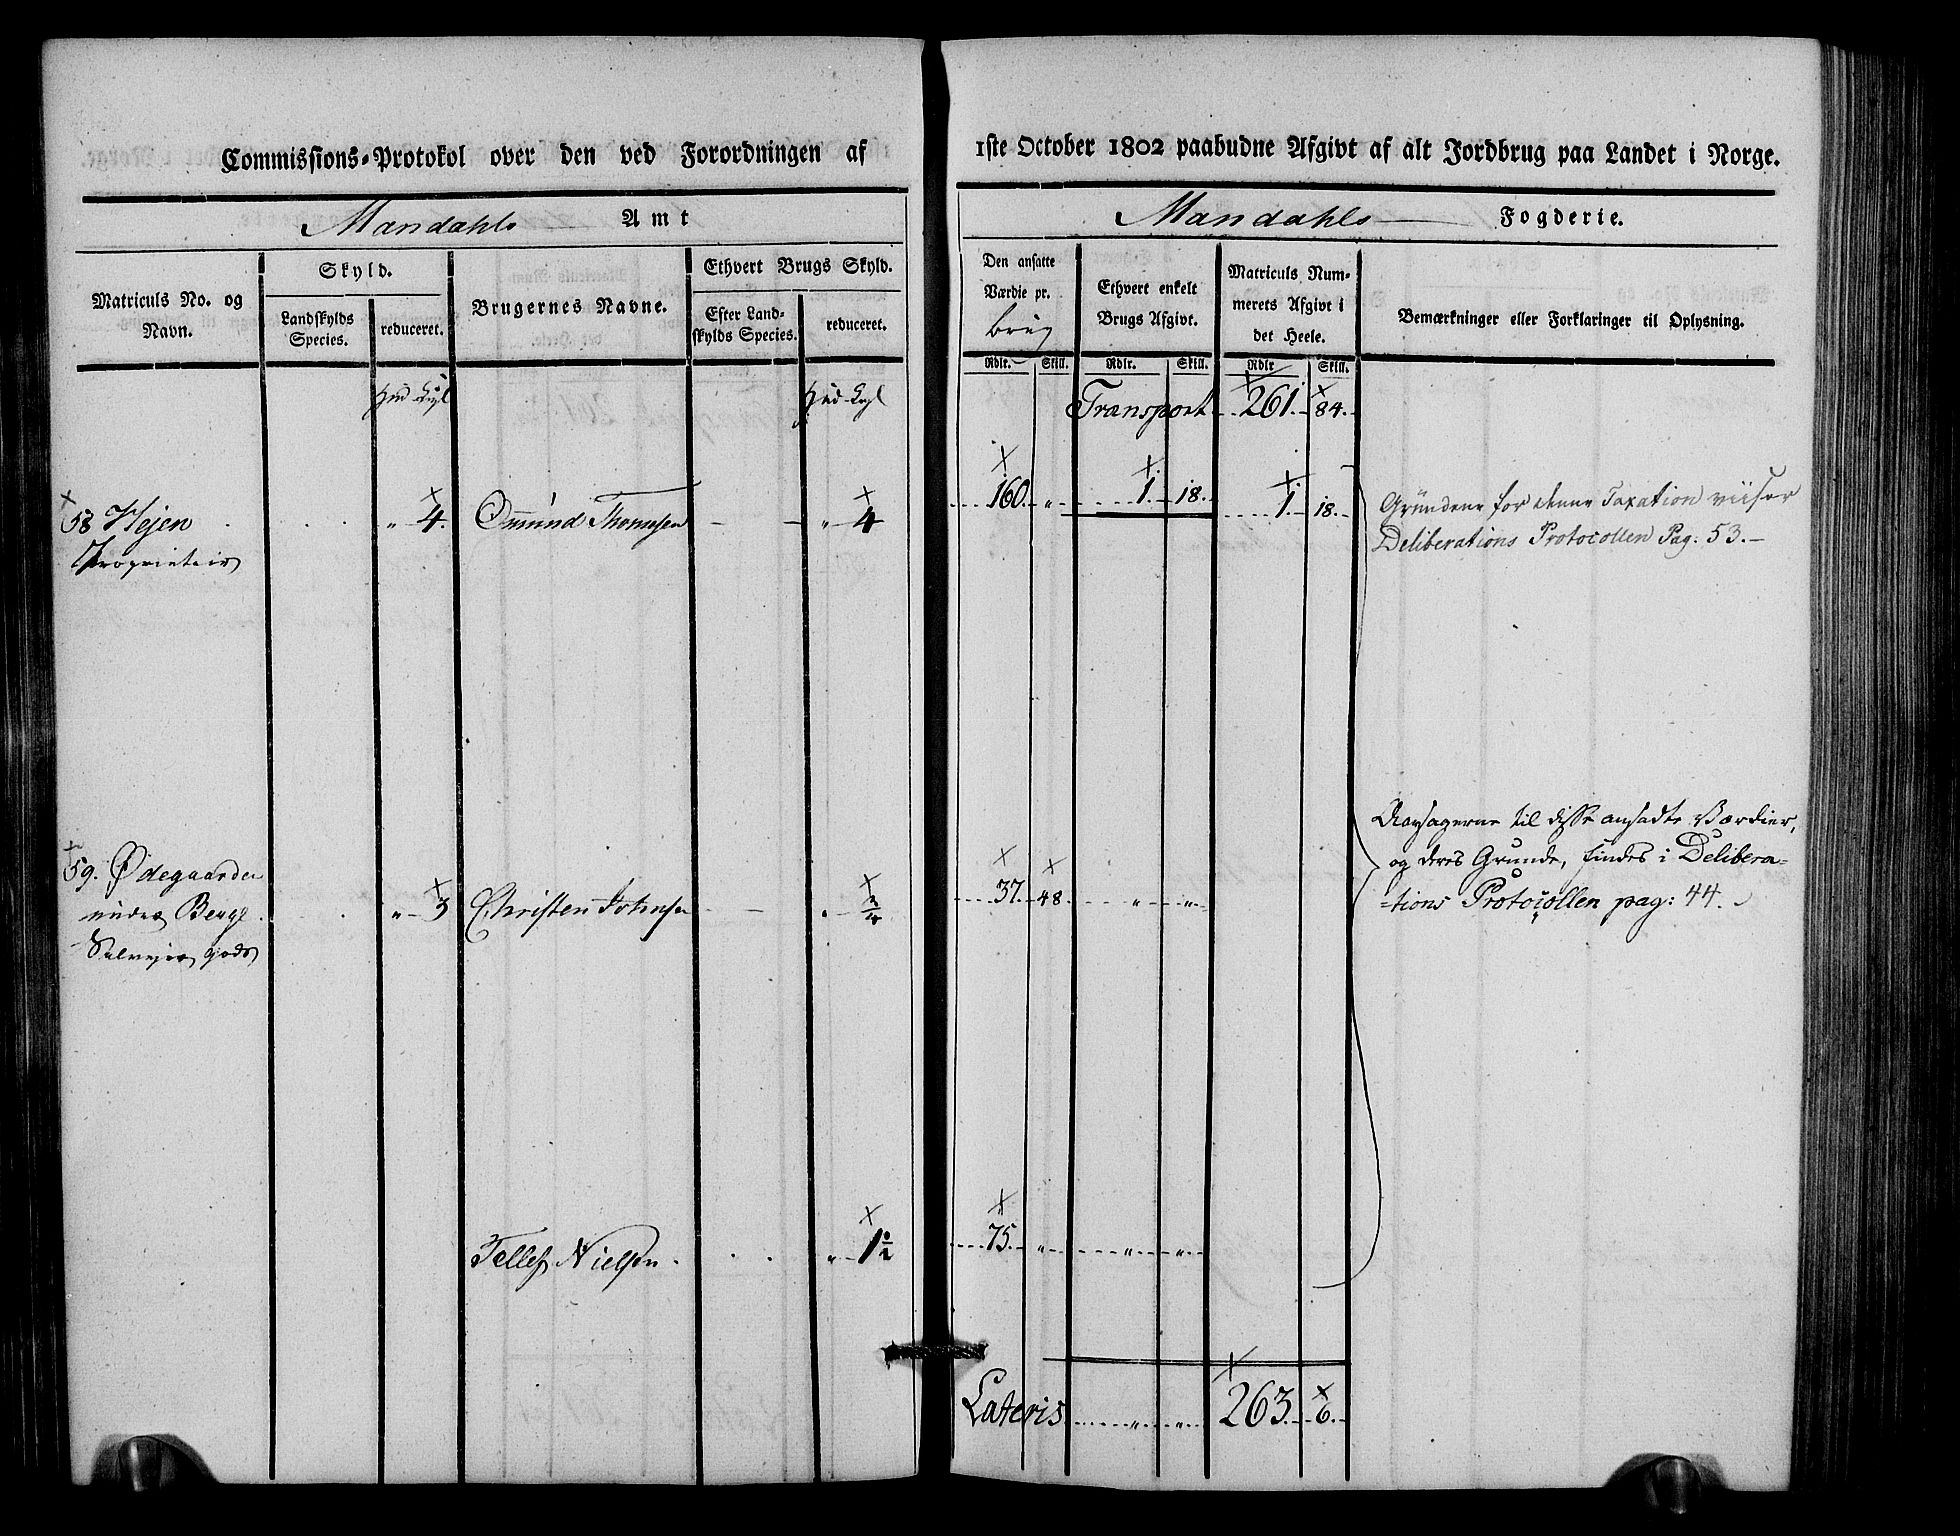 Commissions-Protokol over den ved Forordningen af 1ste October 1802 paabudne Afgivt af alt Jordbrug paa Landet i Norge.
Mandahls Amt
Mandahls Fogderie.
Matriculs No. og Navn.
Skyld.
Landskylds Species.
reduceret.
Brugernes Navne.
Ethvert Brugs Skyld.
Efter Landskylds Species.
reduceret.
Den ansatte Værdie pr. brug
Ethvert enkelt Brugs Afgivt.
Matriculs Nummerets Afgivt i det Heele.
Bemærkninger eller Forklaringer til Oplysning.
Rdlr. Skill. Rdlr. Skill. Rdlr Skill.
Hud
Hud
Transport 261. 84.
58 Hejen " 4. Omund Thomsen " 4 160. " 1. 18. 1. 18.
Proprietair
Grundene for denne Taxation viiser
Deliberations Protocollen Pag: 53.
Aarsagerne til disse ansadte Værdier,
og deres Grunde, findes i Delibera=
=tions Protocollen pag: 44.
59. Ødegaarden
under Berge " 3 Christen Johnsen " 37. 48 " "
Selvejer gods
Tellef Nielsen " 1½ 75. " " "
Lateris " " 263. 6.